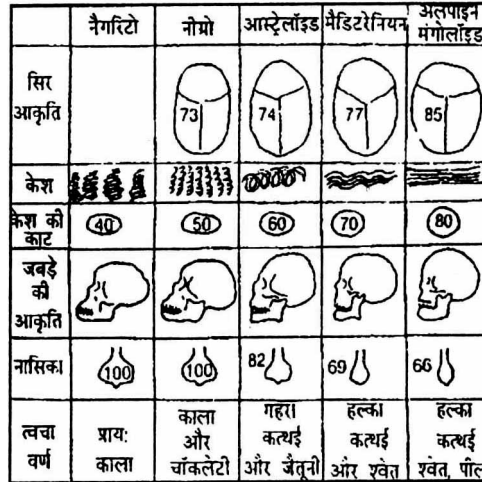 नैगरिटो नीग्रो आस्ट्रेलॉइड मैडिटरेनियन अलपाइन मंगोलॉइड
सिर आकृति 73 74 77 85
केश
केश की काट 40 50 60 70 80
जबड़े की आकृति
नासिका 100 100 82 69 66
त्वचा वर्ण प्राय: काला काला और चॉकलेटी गहरा कत्थई और जैतूनी हल्का कत्थई और श्वेत हल्का कत्थई श्वेत, पील